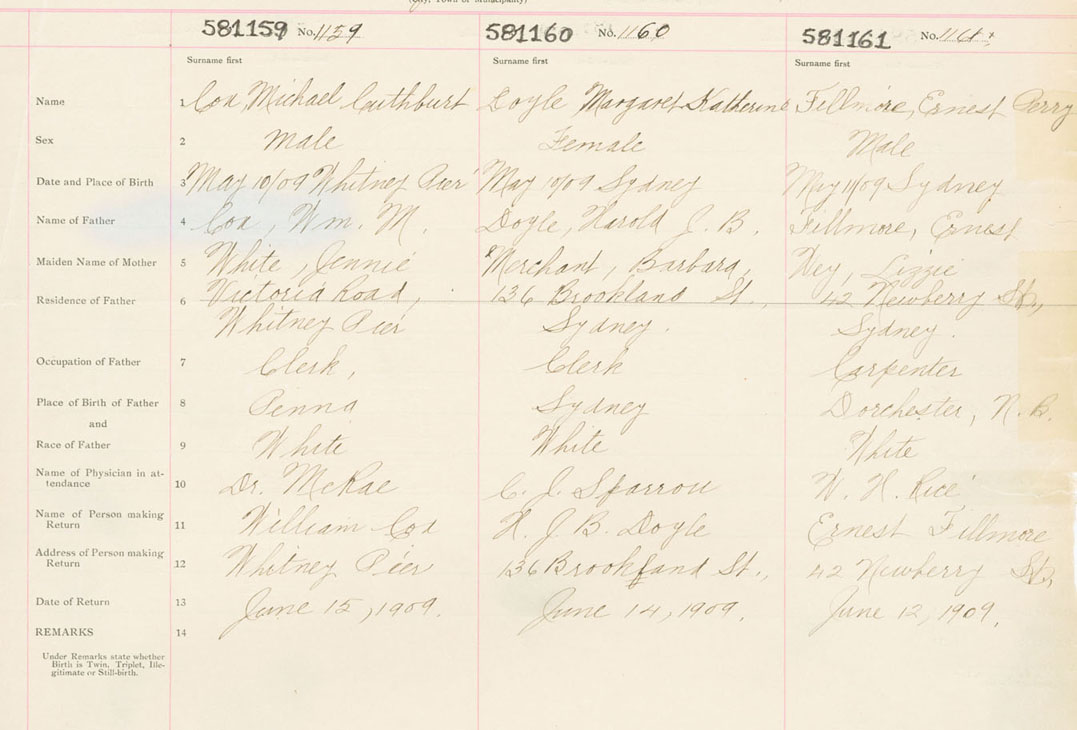 (City, Town or Municipality)
581159 No. 1159 581160 No. 1160 581161 No.
Surname first Surname first Surname first
Name 1 Cox, Michael Cuthburt Doyle Margaret Katherine Fillmore, Ernest Perry
Sex 2 Male Female Male
Date and Place of Birth 3 May 10/09 Whitney Pier May 10/09 Sydney May 11/09 Sydney
Name of Father 4 Cox, Wm. M. Doyle, Harold J. B. Fillmore, Ernest
Maiden Name of Mother 5 White, Jennie Merchant, Barbara, Hey, Lizzie
Residence of Father 6 Victoria Road, 136 Brookland St., 42 Newberry St.,
Whitney Pier Sydney. Sydney.
Occupation of Father 7 Clerk, Clerk Carpenter
Place of Birth of Father 8 Penna Sydney Dorchester, N. B.
and
Race of Father 9 White White White
Name of Physician in at-
tendance 10 Dr. McRae C. J. Sparrow W. H. Rice
Name of Person making
Return 11 William Cox H. J. B. Doyle Ernest Fillmore
Address of Person making
Return 12 Whitney Pier 136 Brookland St., 42 Newberry St.,
Date of Return 13 June 15, 1909. June 14, 1909. June 12, 1909.
REMARKS 14
Under Remarks state whether
Birth is Twin, Triplet, Ille-
gitimate or Still-birth.